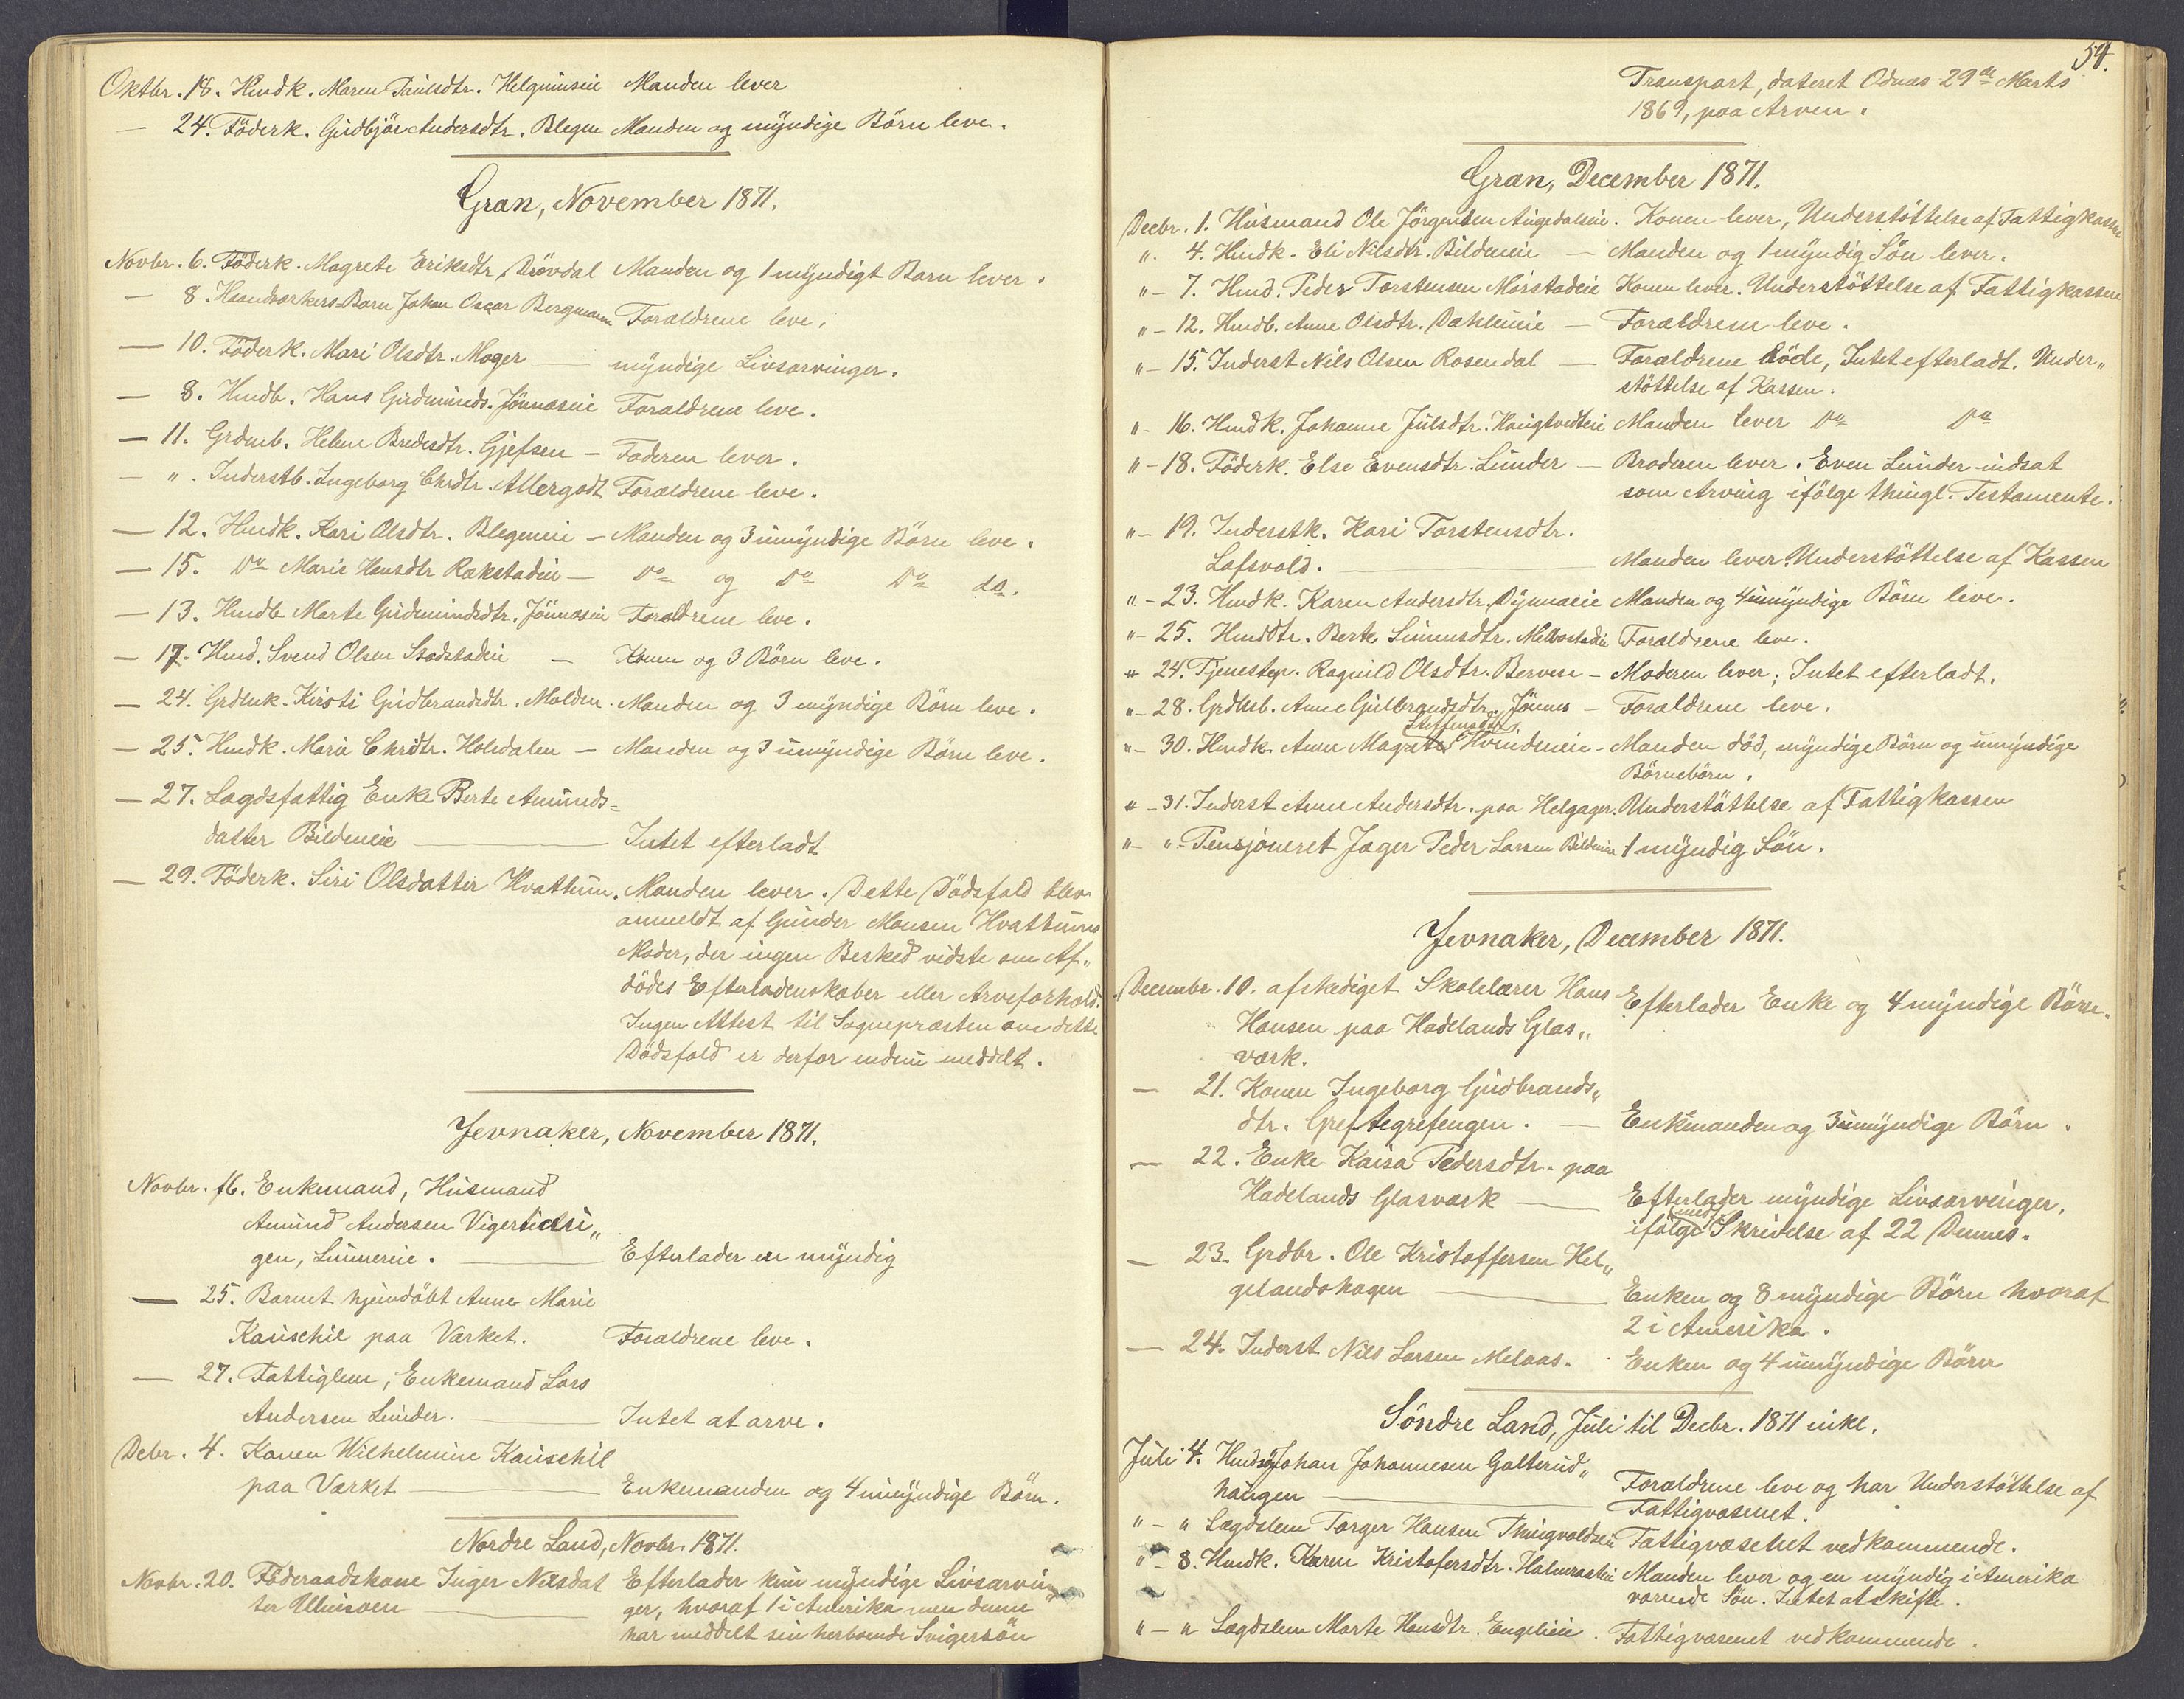 Oktbr. 18. Hmdk. Maren Paulsdtr. Helgumseie Manden lever
— 24. Föderk. Gudbjör Andersdtr. Blegen Manden og myndige Börn leve.
Gran, November 1871.
Novbr. 6. Föderk. Magrete Eriksdtr. Drövdal Manden og 1 myndigt Barn lever.
— 8. Haandværkers Barn Johan Oscar Bergmann Forældrene leve.
— 10. Föderk. Mari Olsdtr. Moger — myndige Livsarvinger.
— 8. Hmdb. Hans Gudmunds. Jönnaseie Forældrene leve.
— 11. Grdmb. Helene Bredesdtr. Gjefsen — Faderen lever.
— ". Inderstb. Ingeborg Chrdtr. Allergodt Forældrene leve.
— 12. Hmdk. Kari Olsdtr. Blegeneie — Manden og 3 umyndige Börn leve.
— 15. Do Marie Hansdtr Rækstadeie — Do og Do Do do.
— 13. Hmdb Marte Gudmundsdtr. Jönnaseie Forældrene leve.
— 17. Hmd. Svend Olsen Stadstadeie — Konen og 3 Börn leve.
— 24. Grdmk. Kirsti Gudbrandsdtr. Molden. Manden og 3 myndige Börn leve.
— 25. Hmdk. Maria Chrdtr. Holedalen — Manden og 3 umyndige Börn leve.
— 27. Lægdsfattig Enke Berte Amunds=
datter Bildeneie — Intet efterladt
— 29. Föderk. Siri Olsdatter Hvattum. Manden lever. Dette Dödsfald blev
anmeldt af Gunder Monsen Hvattums
Moder, der ingen Besked vidste om Af„
dödes Efterladenskaber eller Arveforhold.
Ingen Attest til Sognepræsten om dette
Dödsfald er derfor endnu meddelt.
Jevnaker, November 1871.
Novbr. 16. Enkemand, Husmand
Amund Andersen
gen, Sunnereie. — Efterlader en myndig
— 25. Barnet hjemdöbt Anne Marie
Kauschil paa Værket. Forældrene leve.
— 27. Fattiglem, Enkemand Lars
Andersen Lunder. — Intet at arve.
Debr. 4. Konen Wilhelmine Kauschil
paa Værket — Enkemanden og 4 umyndige Börn.
Nordre Land, Novbr. 1871.
Novbr. 20. Föderaadskone Inger Nilsdat Efterlader kun myndige Livsarvin„
ter — ger, hvoraf 1 i Amerika men denne
har meddelt sin herboende Svigersön
54.
Transport, dateret Odnæs 29de Marts
1869, paa Arven.
Gran, December 1871.
Decbr. 1. Husmand Ole Jörgensen Augedalseie. Konen lever, Understöttelse af Fattigkassen
". 4. Hmdk. Eli Nilsdtr. Bildeneie — Manden og 1 myndig Sön lever.
"— 7. Hmd. Peder Torstensen Morstadeie Konen lever. Understöttelse af Fattigkassen
"— 12. Hmdb. Anne Olsdtr. Dahleneie — Forældrene leve.
"— 15. Inderst Nils Olsen Rosendal — Forældrene döde, Intet efterladt. Under„
stöttelse af Kassen.
"— 16. Hmdk. Johanne Julsdtr. Haugtvedteie Manden lever Do Do
"— 18. Föderk. Else Evensdtr. Lunder — Broderen lever. Even Lunder indsat
som Arving ifölge thingl. Testamente.
"— 19. Inderstk. Kari Torstensdtr.
Lafsvold. — Manden lever. Understöttelse af Kassen
"— 23. Hmdk. Karen Andersdtr. Dynnaeie Manden og 4 umyndige Börn leve.
"— 25. Hmddtr. Berte Simensdtr. Forældrene leve.
" 24. Tjenestep. Ragnild Olsdtr. Berven — Moderen lever; Intet efterladt.
"— 28. Grdmb. Anne Gulbrandsdtr. Jönnes — Forældrene leve.
Steffensdtr.
"— 30. Hmdk. Anne Magrete Hvindeneie — Manden död, myndige Börn og umyndige
Börnebörn.
"— 31. Inderst Anne Andersdtr. paa Helgager. Understöttelse af Fattigkassen
"— ". Pensjoneret Jæger Peder Larsen Bildeneie 1 myndig Sön.
Jevnaker, December 1871.
Decembr. 10. afskediget Skolelærer Hans Efterlader Enke og 4 myndige Börn.
Hansen paa Hadelands Glas„
værk.
— 21. Konen Ingeborg Gudbrands„
dtr. Greftegrefengen. — Enkemanden og 3 umyndige Börn.
— 22. Enke Kaisa Pedersdtr. paa
Hadelands Glasværk — Efterlader myndige Livsarvinger,
ifölge Skrivelse af 22 Dennes.
— 23. Grdbr. Ole Kristoffersen Hel„
gelandshagen — Enken og 8 myndige Börn hvoraf
2 i Amerika.
— 24. Inderst Nils Larsen Melaas. Enken og 4 umyndige Börn
Söndre Land, Juli til Decbr. 1871 inkl.
Juli 4. Johan Johannesen Galterud„
haugen — Forældrene leve og har Understöttelse af
Fattigvæsenet.
"— " Lægdslem Torger Hansen Thingvoldseie Fattigvæsenet vedkommende.
"— 8. Hmdk. Karen Kristofersdtr. Manden lever og en myndig i Amerika
værende Sön. Intet at skifte.
"— " Lægdslem Marte Hansdtr. Engelieie. Fattigvæsenet vedkommende.